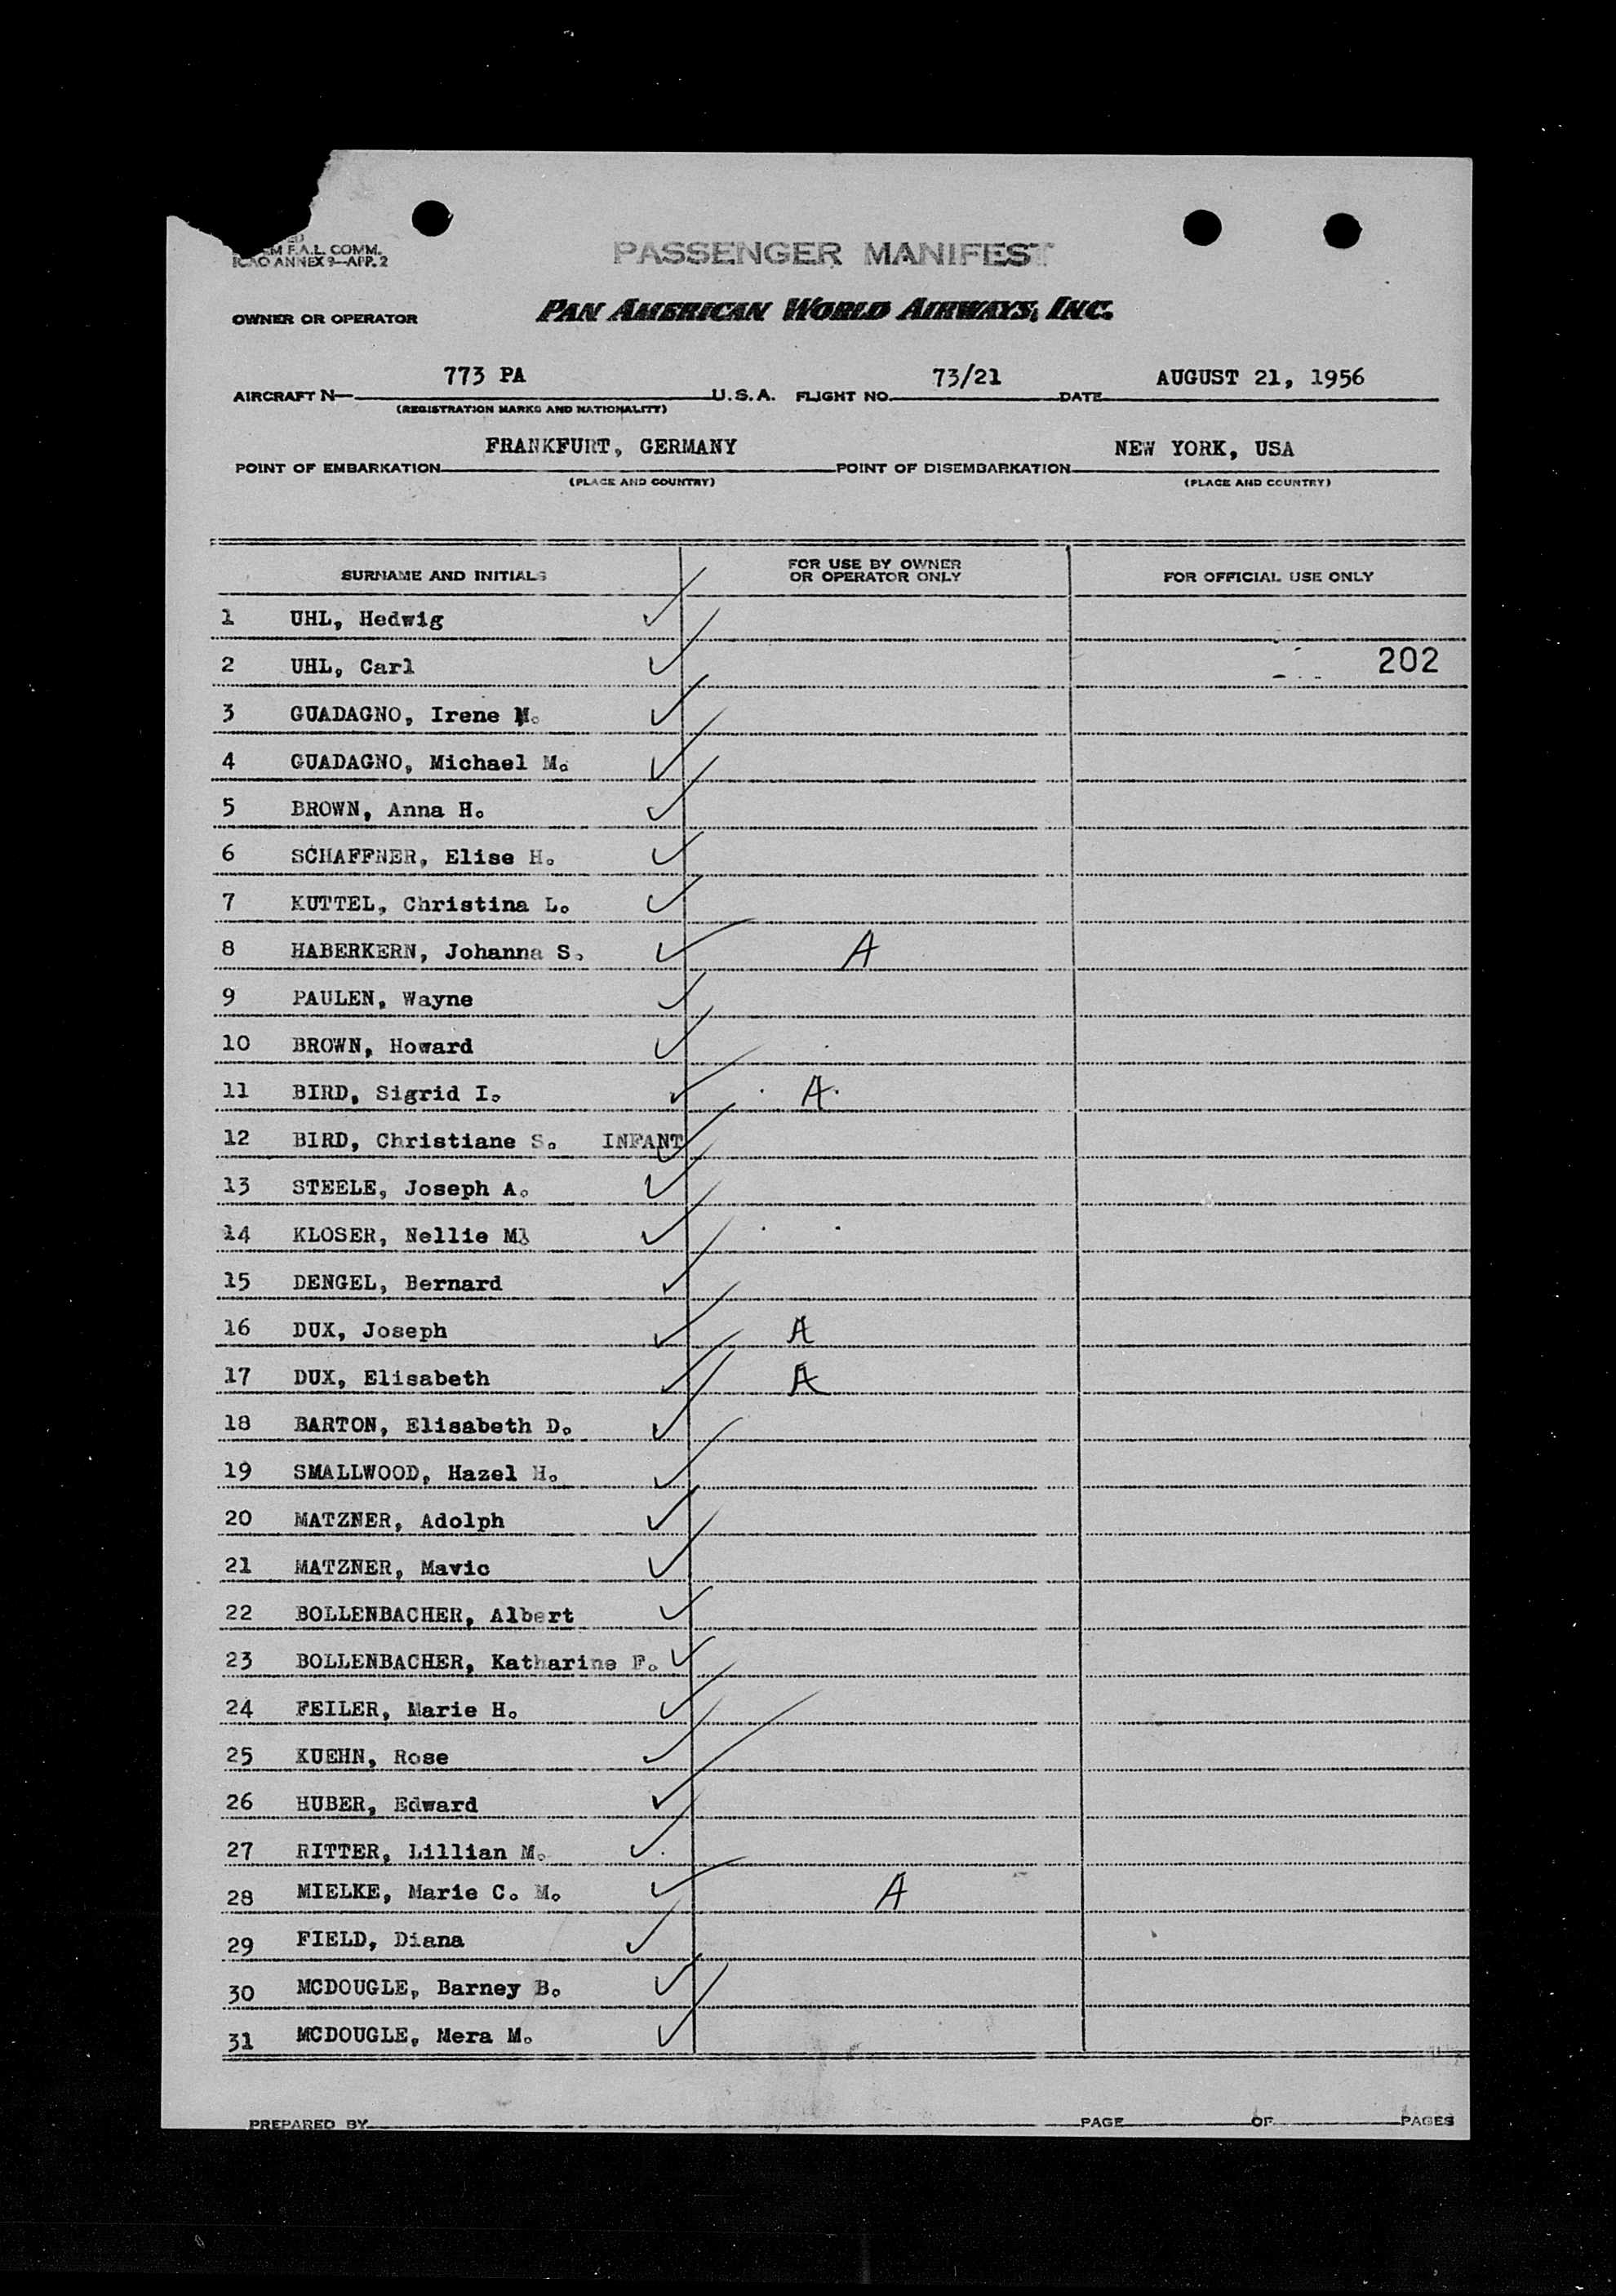 F.A.L. COMM.
ICAO ANNEX 9—APP. 2
PASSENGER MANIFEST
OWNER OR OPERATOR PAN AMERICAN WORLD AIRWAYS, INC.
773 PA 73/21 AUGUST 21, 1956
AIRCRAFT N— U.S.A. FLIGHT NO. DATE
(REGISTRATION MARKS AND NATIONALITY)
FRANKFURT, GERMANY NEW YORK, USA
POINT OF EMBARKATION POINT OF DISEMBARKATION
(PLACE AND COUNTRY) (PLACE AND COUNTRY)
SURNAME AND INITIALS FOR USE BY OWNER OR OPERATOR ONLY FOR OFFICIAL USE ONLY
1 UHL, Hedwig ✓
2 UHL, Carl ✓ 202
3 GUADAGNO, Irene M. ✓
4 GUADAGNO, Michael M. ✓
5 BROWN, Anna H. ✓
6 SCHAFFNER, Elise H. ✓
7 KUTTEL, Christina L. ✓
8 HABERKERN, Johanna S. ✓ A
9 PAULEN, Wayne ✓
10 BROWN, Howard ✓
11 BIRD, Sigrid I. ✓ A
12 BIRD, Christiane S. INFANT ✓
13 STEELE, Joseph A. ✓
14 KLOSER, Nellie Ml ✓
15 DENGEL, Bernard ✓
16 DUX, Joseph ✓ A
17 DUX, Elisabeth ✓ A
18 BARTON, Elisabeth D. ✓
19 SMALLWOOD, Hazel H. ✓
20 MATZNER, Adolph ✓
21 MATZNER, Mavic ✓
22 BOLLENBACHER, Albert ✓
23 BOLLENBACHER, Katharine F. ✓
24 FEILER, Marie H. ✓
25 KUEHN, Rose ✓
26 HUBER, Edward ✓
27 RITTER, Lillian M. ✓
28 MIELKE, Marie C. M. ✓ A
29 FIELD, Diana ✓
30 MCDOUGLE, Barney B. ✓
31 MCDOUGLE, Mera M. ✓
PREPARED BY PAGE OF PAGES